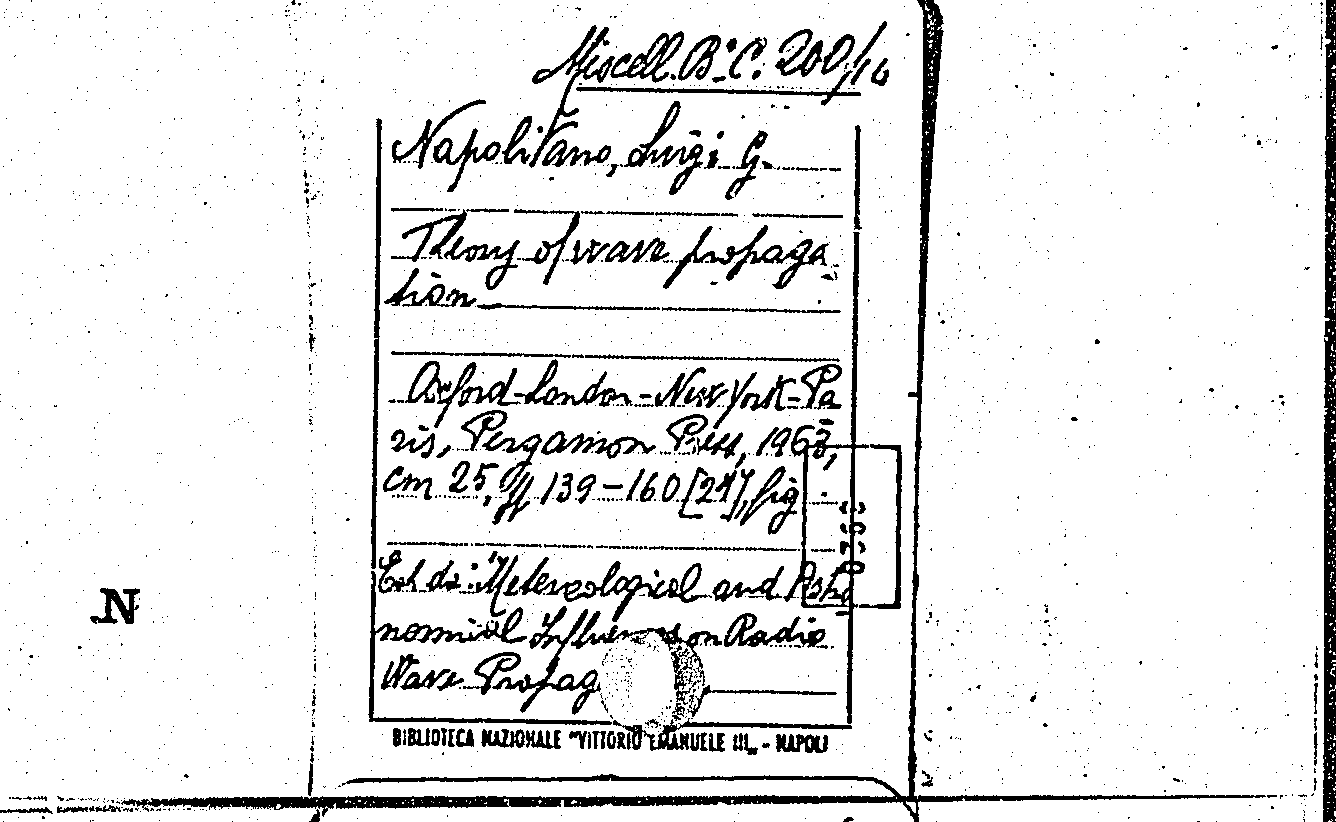 Miscell. B.C. 200/16
Napolitano, Luigi G.
Theory of wave propaga
tion
Oxford-London-New York-Pa
ris, Pergamon Press, 1963,
cm 25, pp 139-160 [24], fig.
Est. da: "Metereological and Astro
nomical Influences on Radio
Wave Propag
BIBLIOTECA NAZIONALE "VITTORIO EMANUELE III" - NAPOLI
N